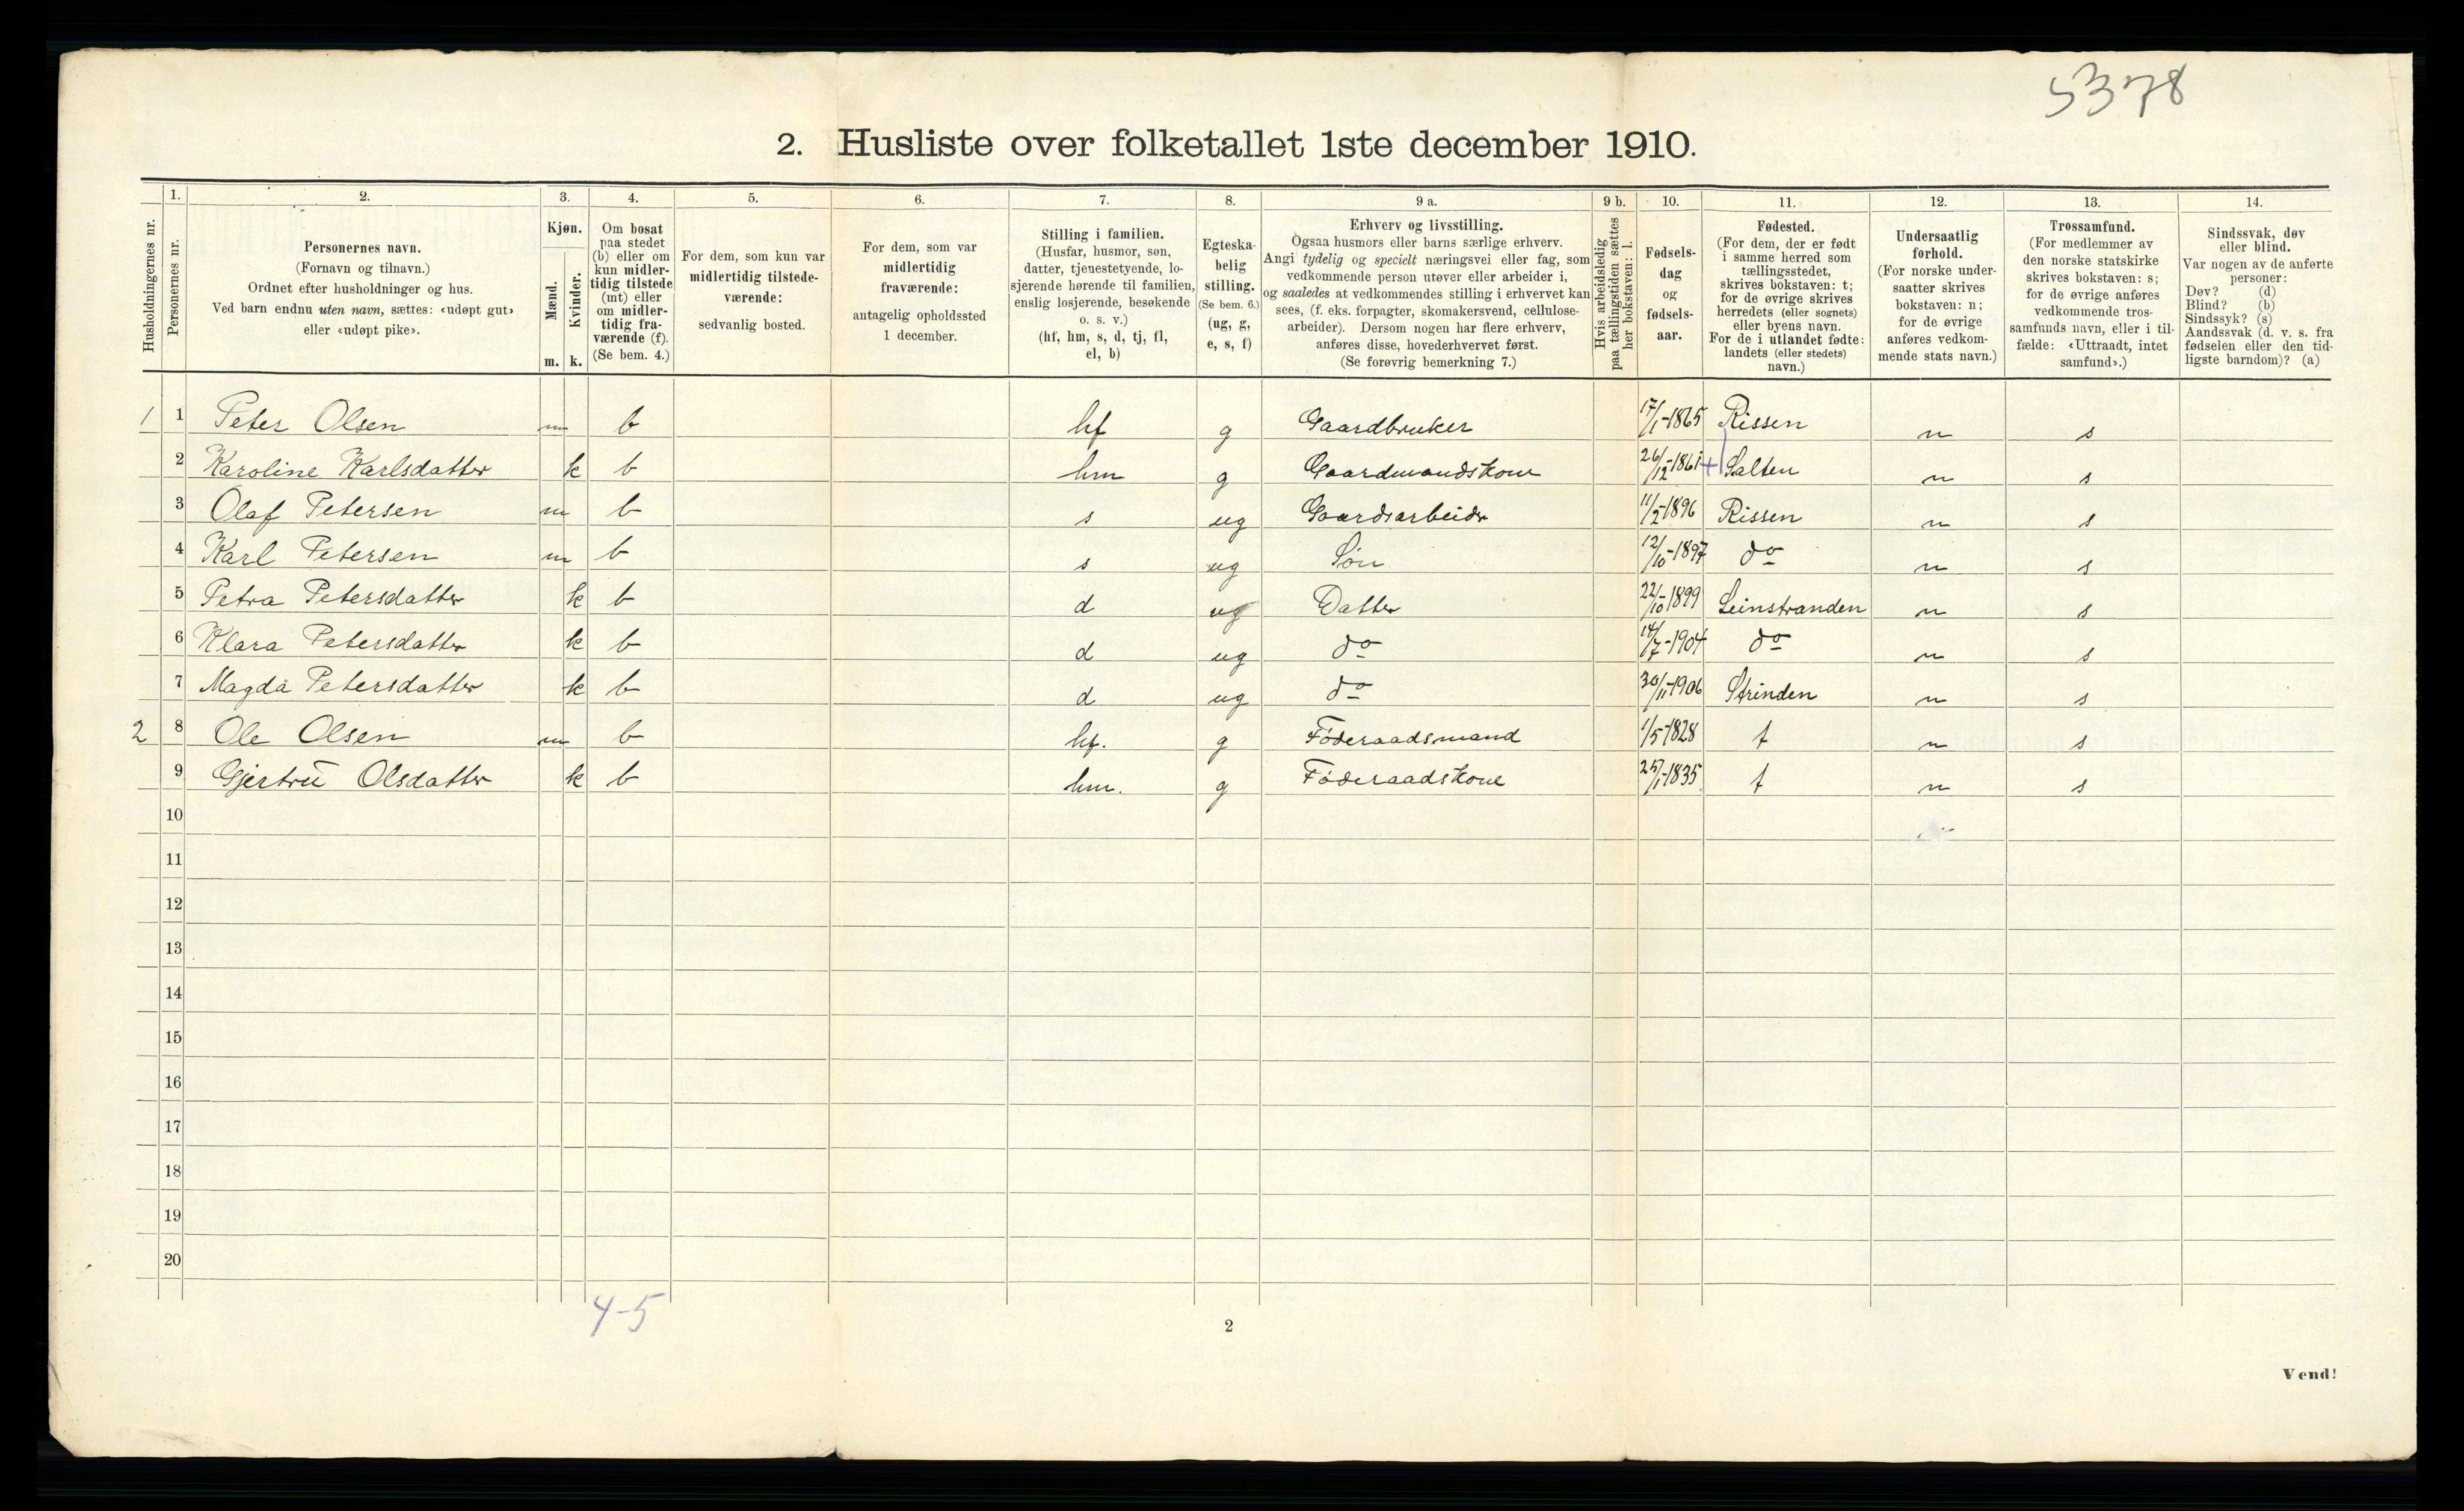 5378
2. Husliste over folketallet 1ste december 1910.
Husholdningernes nr.
1. Personernes nr.
2. Personernes navn.
(Fornavn og tilnavn.)
Ordnet efter husholdninger og hus.
Ved barn endnu uten navn, sættes: «udøpt gut»
eller «udøpt pike».
3. Kjøn.
Mænd. Kvinder.
m. k.
4.
Om bosat
paa stedet
(b) eller om
kun midler-
tidig tilstede
(mt) eller
om midler-
tidig fra-
værende (f).
(Se bem. 4.)
5.
For dem, som kun var
midlertidig tilstede-
værende:
sedvanlig bosted.
6.
For dem, som var
midlertidig
fraværende:
antagelig opholdssted
1 december.
7.
Stilling i familien.
(Husfar, husmor, søn,
datter, tjenestetyende, lo-
sjerende hørende til familien,
enslig losjerende, besøkende
o. s. v.)
(hf, hm, s, d, tj, fl,
el, b)
8.
Egteska-
belig
stilling.
(Se bem. 6.)
(ug, g,
e, s, f)
9 a.
Erhverv og livsstilling.
Ogsaa husmors eller barns særlige erhverv.
Angi tydelig og specielt næringsvei eller fag, som
vedkommende person utøver eller arbeider i,
og saaledes at vedkommendes stilling i erhvervet kan
sees, (f. eks. forpagter, skomakersvend, cellulose-
arbeider). Dersom nogen har flere erhverv,
anføres disse, hovederhvervet først.
(Se forøvrig bemerkning 7.)
9 b.
Hvis arbeidsledig
paa tællingstiden sættes
her bokstaven: l.
10.
Fødsels-
dag
og
fødsels-
aar.
11.
Fødested.
(For dem, der er født
i samme herred som
tællingsstedet,
skrives bokstaven: t;
for de øvrige skrives
herredets (eller sognets)
eller byens navn.
For de i utlandet fødte:
landets (eller stedets)
navn.)
12.
Undersaatlig
forhold.
(For norske under-
saatter skrives
bokstaven: n;
for de øvrige
anføres vedkom-
mende stats navn.)
13.
Trossamfund.
(For medlemmer av
den norske statskirke
skrives bokstaven: s;
for de øvrige anføres
vedkommende tros-
samfunds navn, eller i til-
fælde: «Uttraadt, intet
samfund».)
14.
Sindssvak, døv
eller blind.
Var nogen av de anførte
personer:
Døv? (d)
Blind? (b)
Sindssyk? (s)
Aandssvak (d. v. s. fra
fødselen eller den tid-
ligste barndom)? (a)
1 1 Peter Olsen m b hf g Gaardbruker 17/1-1865 Rissen n s
2 Karoline Karlsdatter k b hm g Gaardmandskone 26/12-1861 + Salten n s
3 Olaf Petersen m b s ug Gaardsarbeider 11/2-1896 Rissen n s
4 Karl Petersen m b s ug Søn 12/10-1897 do n s
5 Petra Petersdatter k b d ug Datter 22/10-1899 Leinstranden n s
6 Klara Petersdatter k b d ug do 14/7-1904 do n s
7 Magda Petersdatter k b d ug do 30/11-1906 Strinden n s
2 8 Ole Olsen m b hf. g Føderaadsmand 1/5-1828 t n s
9 Gjertru Olsdatter k b hm. g Føderaadskone 25/1-1835 t n s
10
11
12
13
14
15
16
17
18
19
20
4-5
2
Vend!